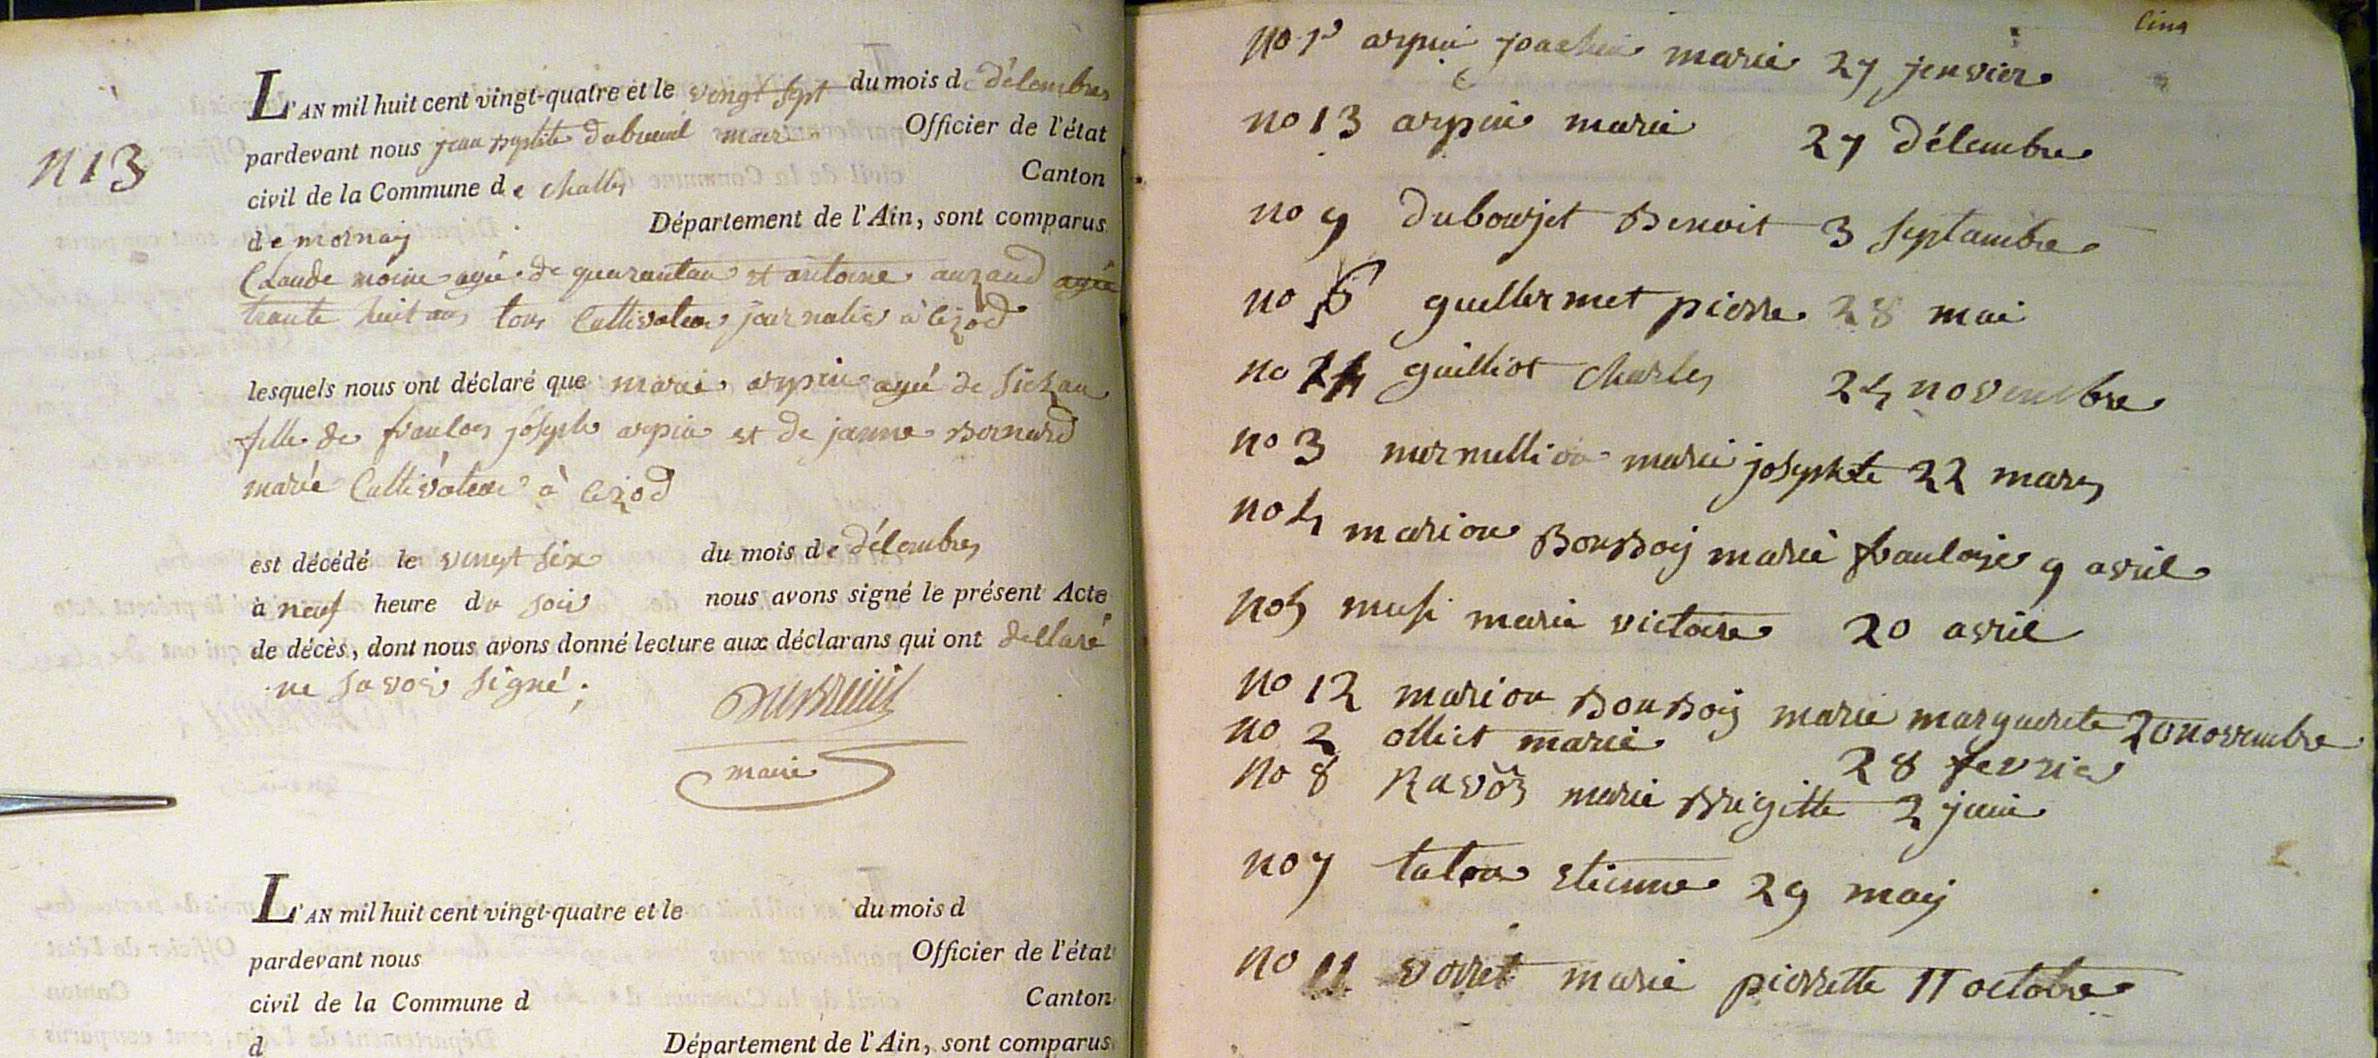 N 13
L'AN mil huit cent vingt-quatre et le vingt sept du mois de délembres
pardevant nous jean baptite dubreuil maire Officier de l'état
civil de la Commune de challes Canton
de mornay Département de l'Ain, sont comparus
Claude moine agé de quarantan et antoine auzaud agé
trante huit ans tous Cultivateur journalié à cizod
lesquels nous ont déclaré que marie arpin agé de
fille de joseph arpin et de janne Bernard
marié Cultivateur à cizod
est décédé le vingt six du mois de délembres
à neuf heure du soir nous avons signé le présent Acte
de décès, dont nous avons donné lecture aux déclarans qui ont dellaré
ne savoir signé.
DuBreuil
maire
L'AN mil huit cent vingt-quatre et le du mois d
pardevant nous Officier de l'état
civil de la Commune d Canton
d Département de l'Ain, sont comparus
Cinq
no 1 arpin joachin marie 27 jenvier
no 13 arpin marie 27 délembre
no 9 dubourjet Benoit 3 septambre
no 6 guillermet pierre 28 mai
no guilliot charles 24 novembre
no 3 marie josephte 22 mars
no 4 marion BonBoy marie franloise 9 avril
no 5 musi marie victoire 20 avril
no 12 marion BonBoy marie marguerite 20 novembre
no 2 olliet marie 28 fevrier
no 8 Ravôz marie Brigitte 2 juin
no 7 taton etienne 29 may
no 11 voret marie pierrette 11 octobre